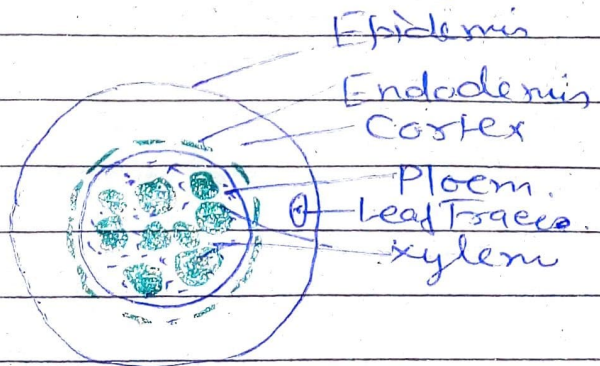 Epidemis
Endodemis
Cortex
Ploem.
Leaf Traces.
xylem